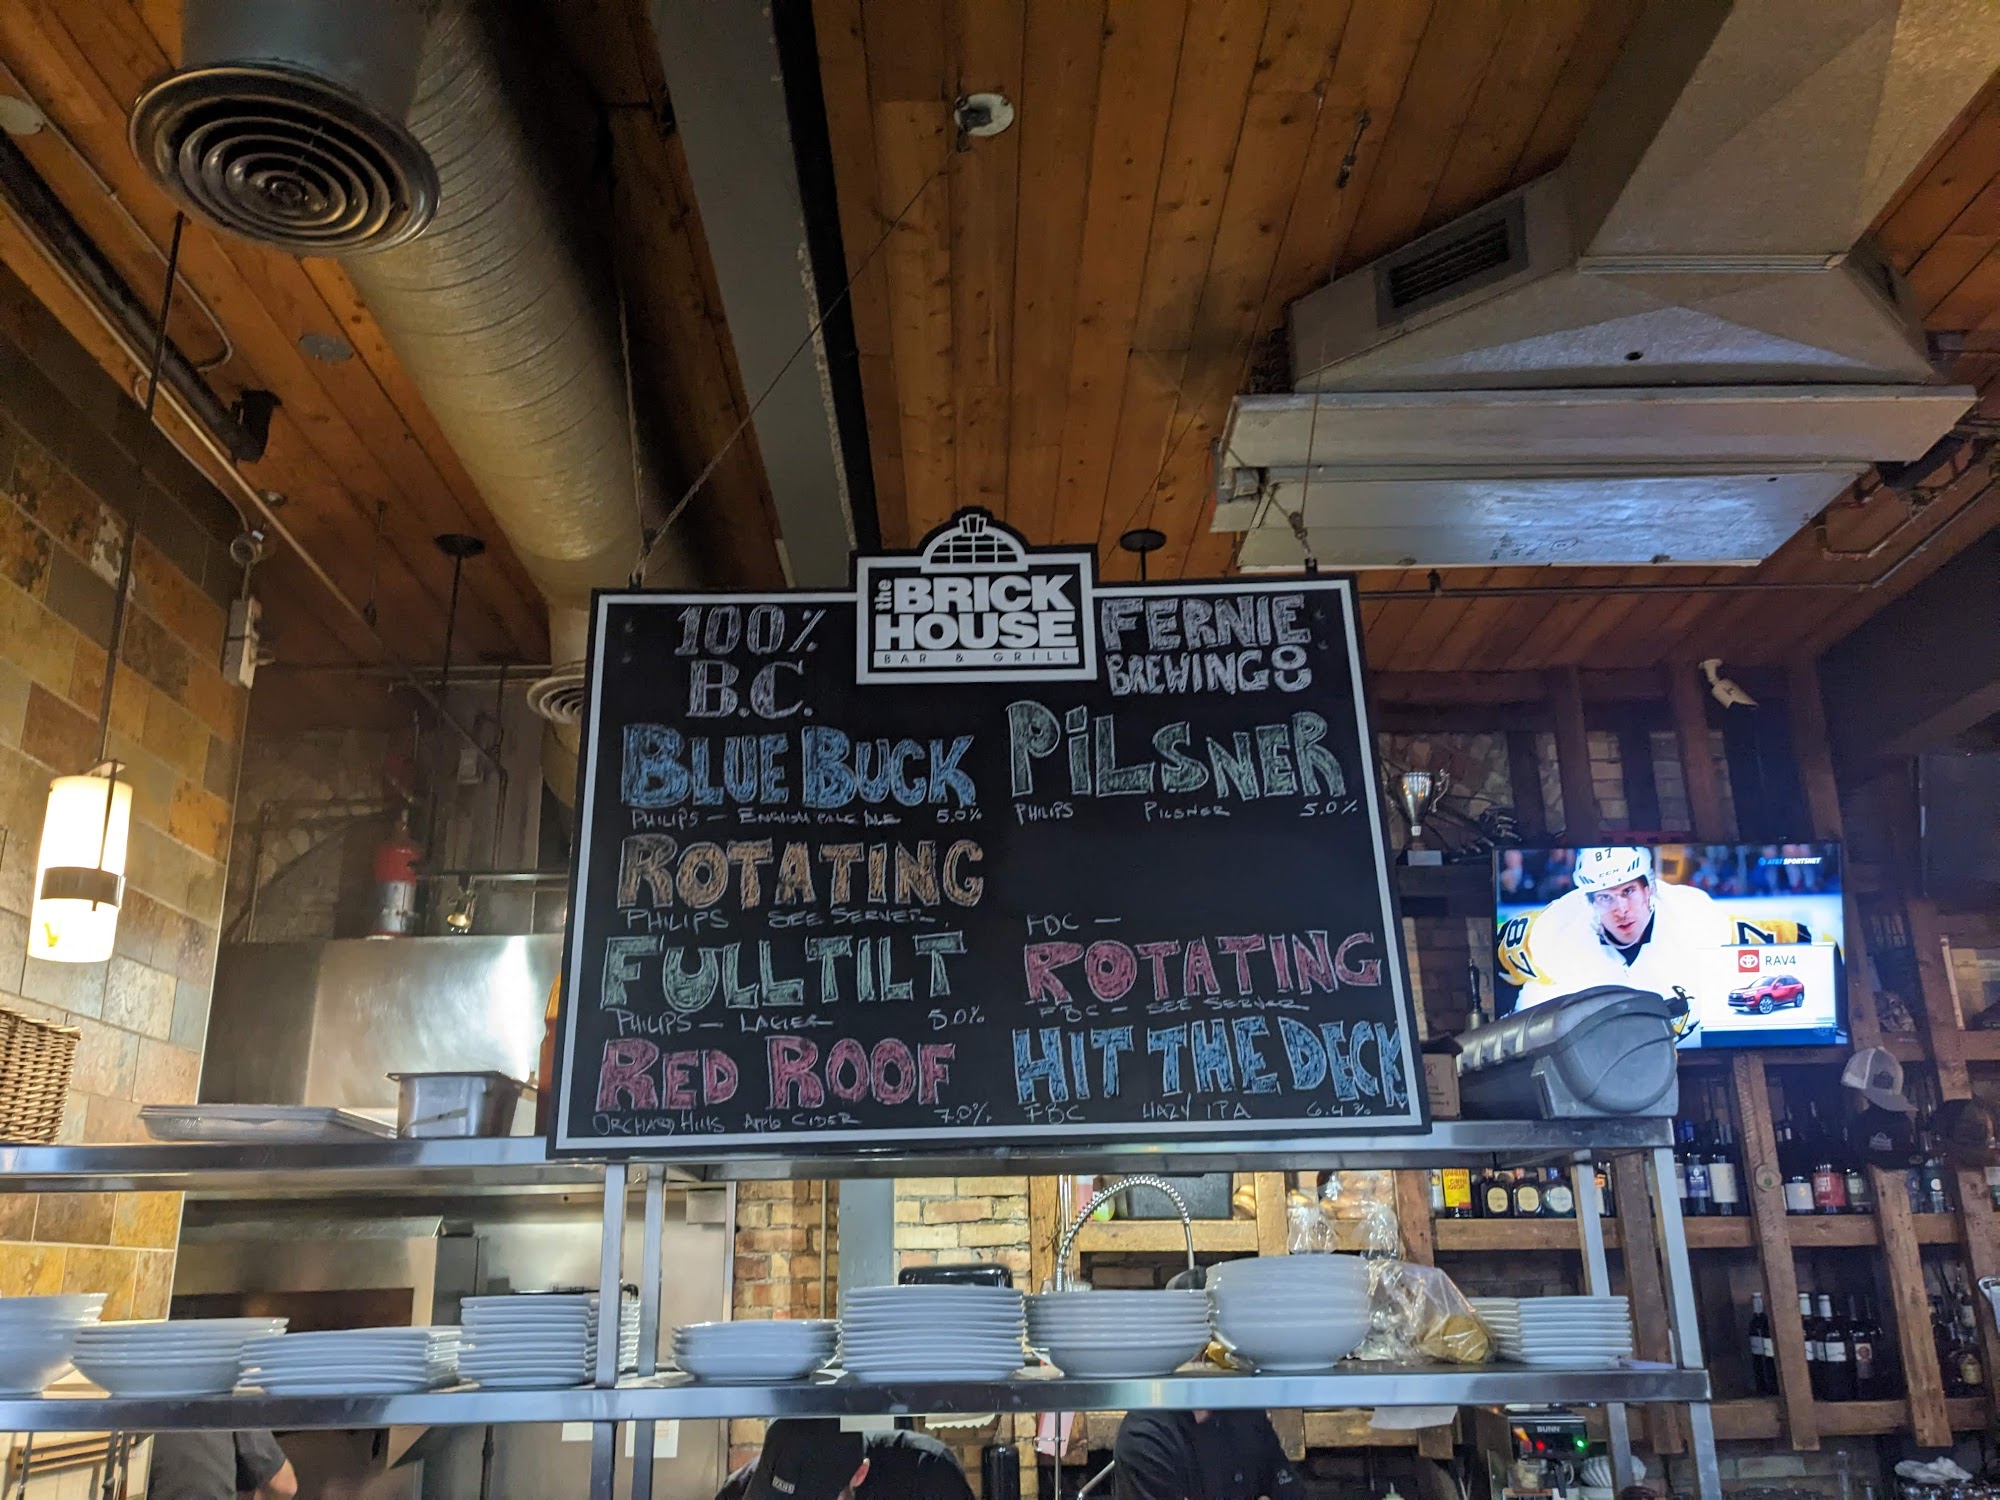 the
BRICK
HOUSE
BAR & GRILL
100%
B.C.
BLUE BUCK
PHILIPS — ENGLISH PALE ALE 5.0%
ROTATING
PHILIPS SEE SERVER
FULL TILT
PHILIPS — LAGER 5.0%
RED ROOF
ORCHARD HILLS APPLE CIDER 7.0%
FERNIE
BREWING CO
PILSNER
PHILIPS PILSNER 5.0%
FBC —
ROTATING
FBC — SEE SERVER
HIT THE DECK
FBC HAZY IPA 6.4%
AT&T SPORTSNET
87
CCM
87
RAV4
BUNN